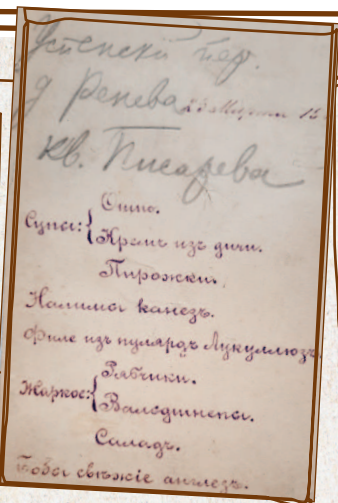 Успенскій пер.
д Ренева 23 Марта 15
кв. Писарева
Супы: { Ошпо.
Кремъ изъ дичи.
Пирожки.
Налимы канезъ.
Филе изъ пулардъ Лукуллюзъ
Жаркое: { Рябчики.
Вальдшнепы.
Саладъ.
Бобы свѣжіе англезъ.